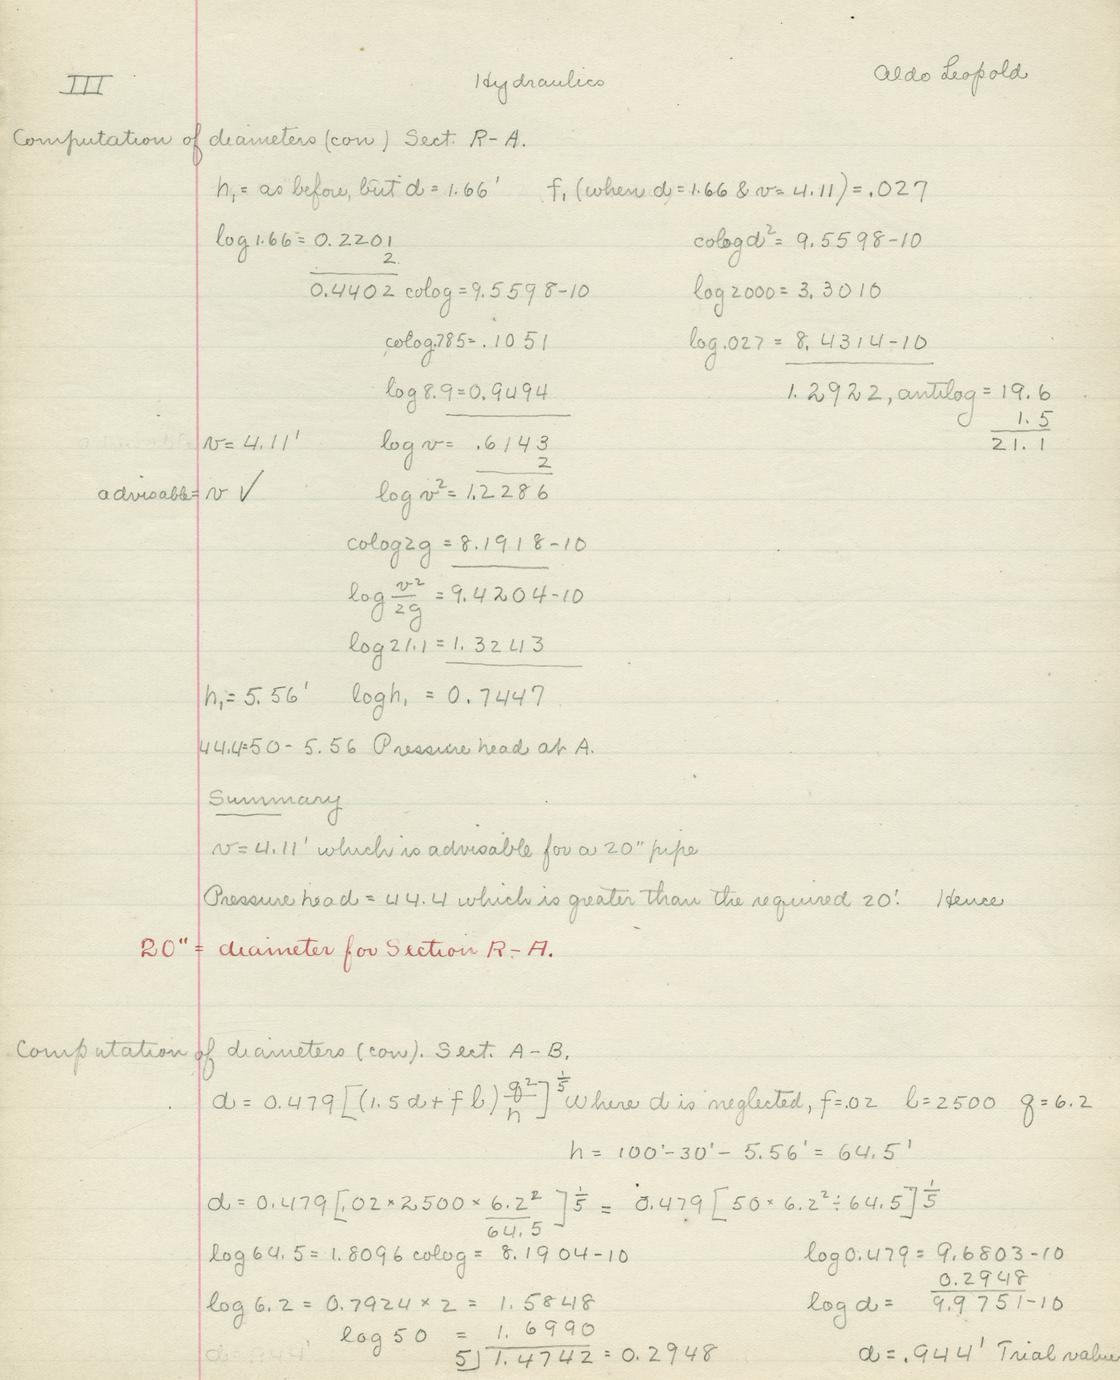 III Hydraulics Aldo Leopold
Computation of diameters (con) Sect. R-A.
h₁= as before, but d = 1.66' f₁ (when d=1.66 & v= 4.11)=.027
log 1.66= 0.2201 colog d²= 9.5598-10
2
0.4402 colog=9.5598-10 log 2000= 3.3010
colog.785= .1051 log .027 = 8.4314-10
log 8.9=0.9494 1.2922, antilog= 19.6
1.5
v= 4.11' log v= .6143 21.1
2
advisable= v ✓ log v²= 1.2286
colog2g = 8.1918-10
log v²/2g = 9.4204-10
log 21.1 = 1.3243
h₁= 5.56' log h₁ = 0.7447
44.4=50- 5.56 Pressure head at A.
Summary
v= 4.11' which is advisable for a 20" pipe
Pressure head = 44.4 which is greater than the required 20'. Hence
20" = diameter for Section R-A.
Computation of diameters (con). Sect. A-B.
d = 0.479[(1.5d+fl) q²/h]^1/5 where d is neglected, f=.02 l=2500 q=6.2
h = 100'-30'- 5.56' = 64.5'
d= 0.479[.02×2500× 6.2²/64.5]^1/5 = 0.479[50×6.2²÷64.5]^1/5
log 64.5= 1.8096 colog= 8.1904-10 log 0.479= 9.6803-10
0.2948
log 6.2 = 0.7924×2 = 1.5848 log d= 9.9751-10
log 50 = 1.6990
5)1.4742 = 0.2948 d=.944' Trial value